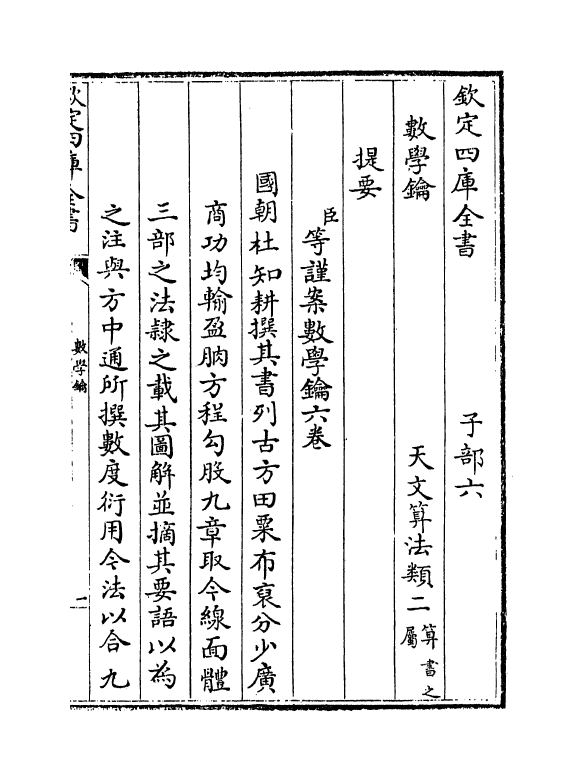 欽定四庫全書　子部六
數學鑰　天文算法類二算書之屬
提要
臣等謹案數學鑰六卷
國朝杜知耕撰其書列古方田粟布衰分少廣
商功均輸盈朒方程勾股九章取今線面體
三部之法隷之載其圖解並摘其要語以為
之注與方中通所撰數度衍用今法以合九
欽定四庫全書　數學鑰　一